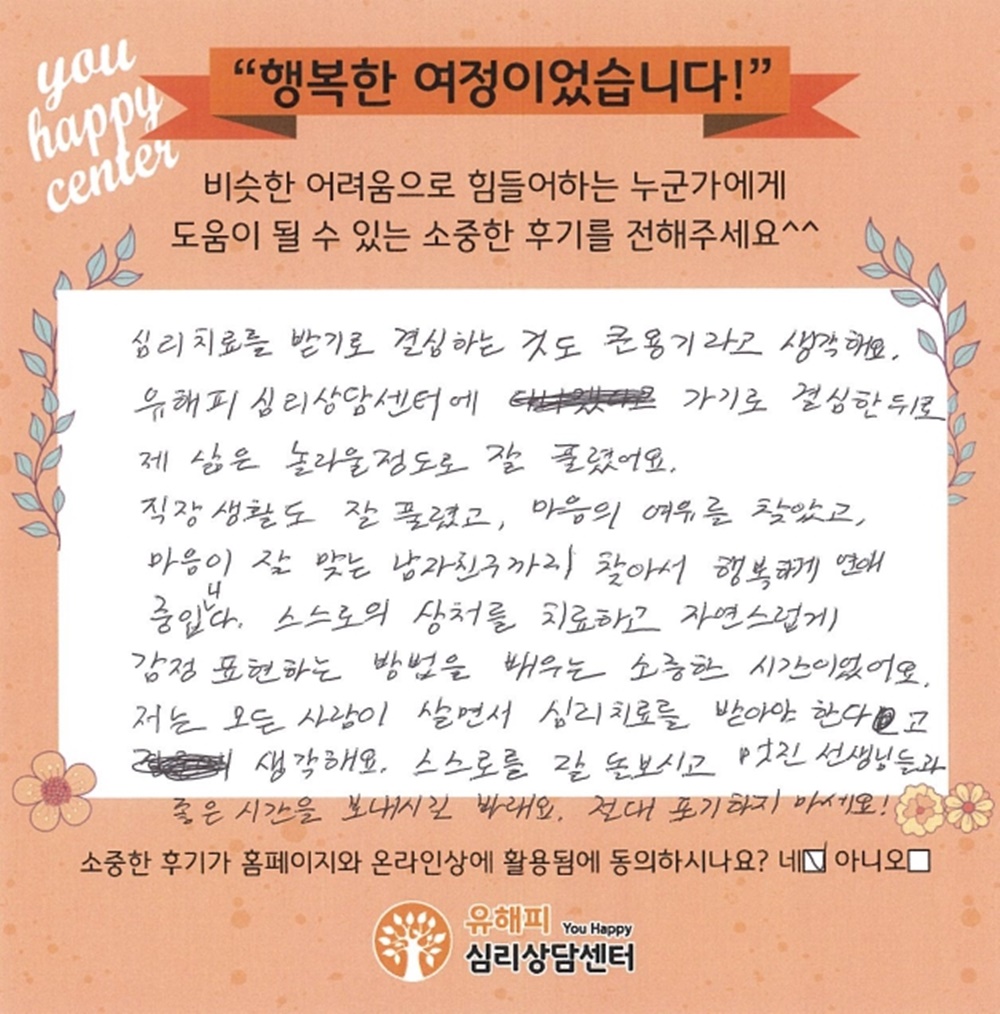 you
happy
center
“행복한 여정이었습니다!”
비슷한 어려움으로 힘들어하는 누군가에게
도움이 될 수 있는 소중한 후기를 전해주세요^^
심리치료를 받기로 결심하는 것도 큰용기라고 생각해요.
유해피 심리상담센터에 가기로 결심한뒤로
제 삶은 놀라울정도로 잘 풀렸어요.
직장생활도 잘 풀렸고, 마음의 여유를 찾았고,
마음이 잘 맞는 남자친구까지 찾아서 행복하게 연애
중입니다. 스스로의 상처를 치료하고 자연스럽게
감정 표현하는 방법을 배우는 소중한 시간이었어요.
저는 모든 사람이 살면서 심리치료를 받아야 한다고
생각해요. 스스로를 잘 돌보시고 멋진 선생님들과
좋은 시간을 보내시길 바래요. 절대 포기하지 마세요!
소중한 후기가 홈페이지와 온라인상에 활용됨에 동의하시나요? 네☑ 아니오□
유해피 You Happy
심리상담센터